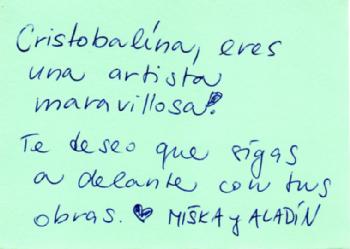 Cristobalína, eres
una artista
maravillosa!
Te deseo que sigas
a delante con tus
obras. ♥ MIŠKA y ALADÍN